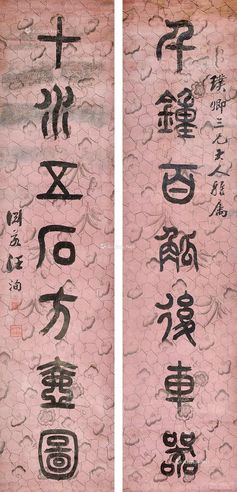 璞卿三兄大人雅屬
千鍾百觚後車器
十水五石方壺圖
淵若汪洵